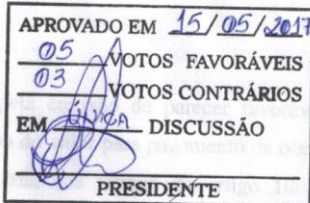 APROVADO EM 15/05/2017
05 VOTOS FAVORÁVEIS
03 VOTOS CONTRÁRIOS
EM ÚNICA DISCUSSÃO
PRESIDENTE